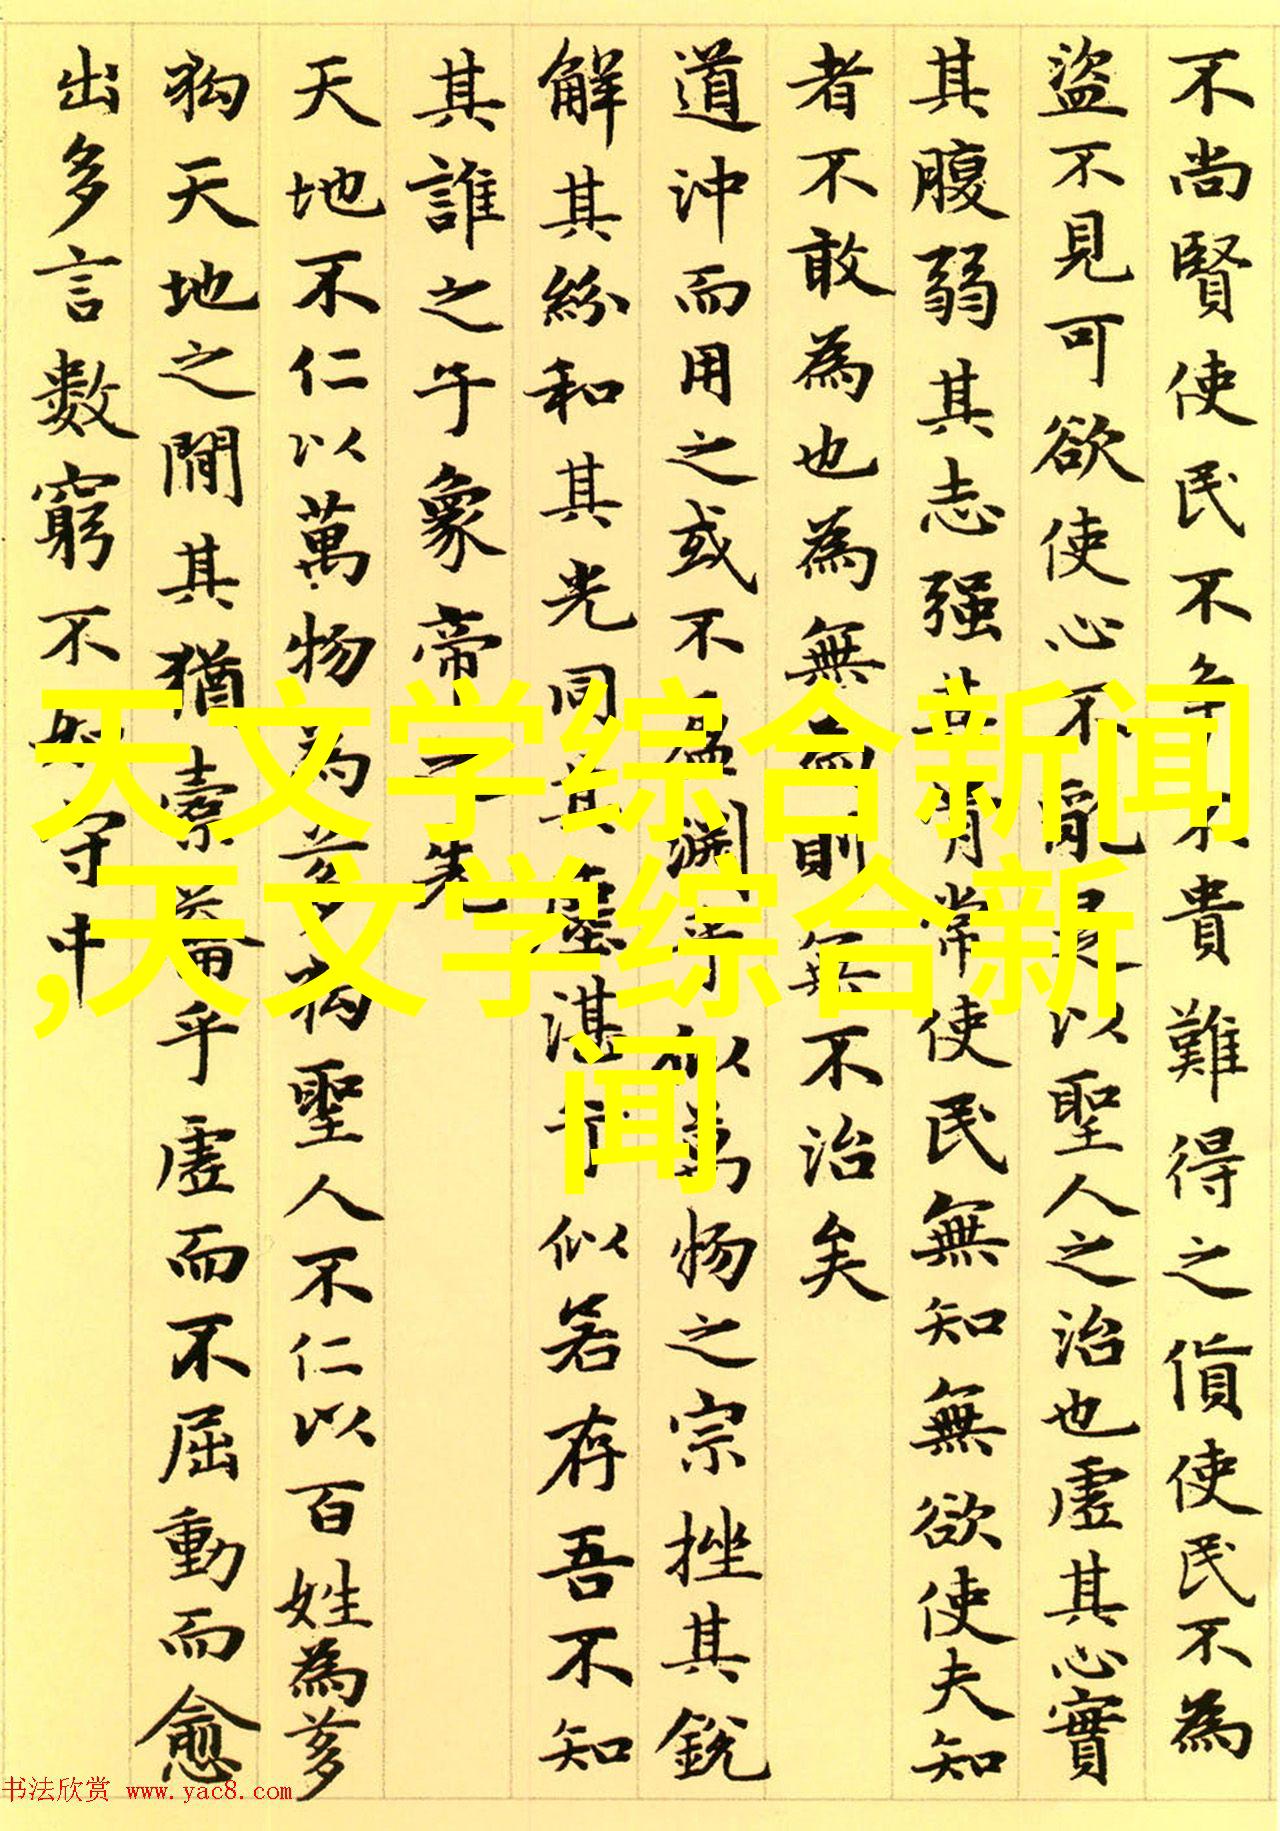 不尚賢使民不争不貴難得之貨使民不為
盜不見可欲使心不亂是以聖人之治也虛其心實
其腹弱其志强其骨常使民無知無欲使夫知
者不敢為也為無為則無不治矣
道沖而用之或不盈淵乎似萬物之宗挫其銳
解其紛和其光同其塵湛乎似若存吾不知
其誰之子象帝之先
天地不仁以萬物為芻狗聖人不仁以百姓為芻
狗天地之閒其猶橐籥乎虛而不屈動而愈
出多言數窮不如守中
天文学综合新闻
,天文学综合新
闻
书法欣赏 www.yac8.com